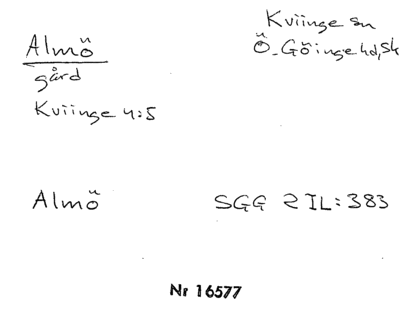 Almö
gård
Kviinge 4:5
Kviinge sn
Ö. Göinge hd, Sk
Almö
SGG 2 IL: 383
Nr 16577